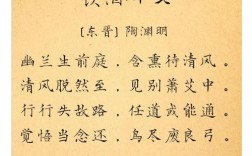 [东晋] 陶渊明
幽兰生前庭，含熏待清风。
清风脱然至，见别萧艾中。
行行失故路，任道或能通。
觉悟当念还，鸟尽废良弓。